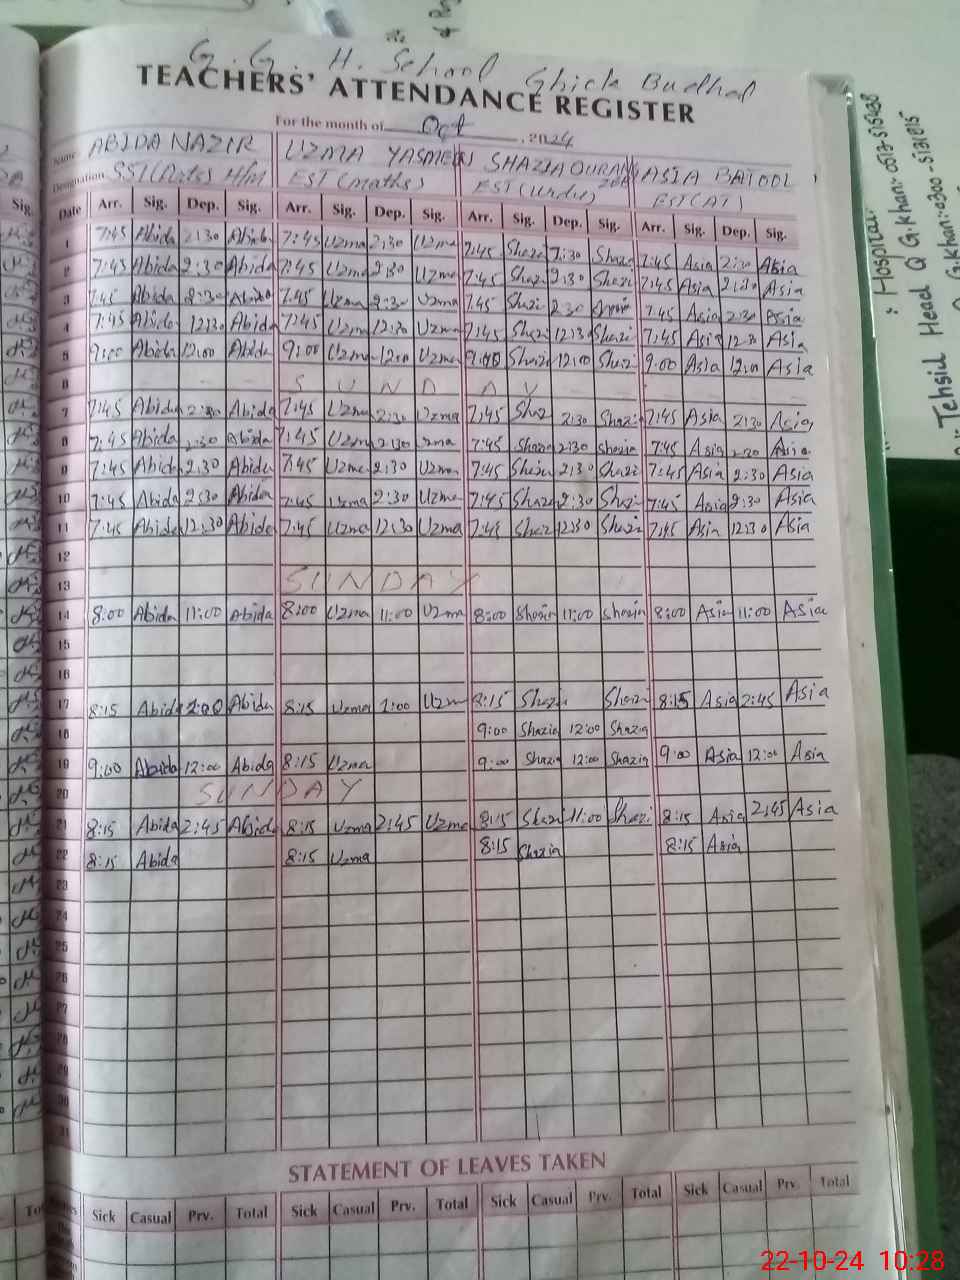 G. G. H. School Ghick Budhal
TEACHERS' ATTENDANCE REGISTER
For the month of Oct , 2024
Name ABIDA NAZIR UZMA YASMEEN SHAZIA ASIA BATOOL
Designation SST (Arts) H/M EST (maths) EST (Urdu) EST (AT)
Date Arr. Sig. Dep. Sig. Arr. Sig. Dep. Sig. Arr. Sig. Dep. Sig. Arr. Sig. Dep. Sig.
1 7:45 Abida 2:30 Abida 7:45 Uzma 2:30 Uzma 7:45 Shazi 2:30 Shazi 7:45 Asia 2:30 Asia
2 7:45 Abida 2:30 Abida 7:45 Uzma 2:30 Uzma 7:45 Shazi 2:30 Shazi 7:45 Asia 2:30 Asia
3 7:45 Abida 2:30 Abida 7:45 Uzma 2:30 Uzma 7:45 Shazi 2:30 7:45 Asia 2:30 Asia
4 7:45 Abida 12:30 Abida 7:45 Uzma 12:30 Uzma 7:45 Shazi 12:30 Shazi 7:45 Asia 12:30 Asia
5 9:00 Abida 12:00 Abida 9:00 Uzma 12:00 Uzma 9:00 Shazi 12:00 Shazi 9:00 Asia 12:00 Asia
6 SUNDAY
7 7:45 Abida 2:30 Abida 7:45 Uzma 2:30 Uzma 7:45 Shaz 2:30 Shazi 7:45 Asia 2:30 Asia
8 7:45 Abida 2:30 Abida 7:45 Uzma 2:30 Uzma 7:45 Shazia 2:30 Shazia 7:45 Asia 2:30 Asia
9 7:45 Abida 2:30 Abida 7:45 Uzma 2:30 Uzma 7:45 Shazia 2:30 Shazi 7:45 Asia 2:30 Asia
10 7:45 Abida 2:30 Abida 7:45 Uzma 2:30 Uzma 7:45 Shazi 2:30 Shazi 7:45 Asia 2:30 Asia
11 7:45 Abida 12:30 Abida 7:45 Uzma 12:30 Uzma 7:45 Shazi 12:30 Shazi 7:45 Asia 12:30 Asia
12
13 SUNDAY
14 8:00 Abida 11:00 Abida 8:00 Uzma 11:00 Uzma 8:00 Shazia 11:00 Shazia 8:00 Asia 11:00 Asia
15
16
17 8:15 Abida Abida 8:15 Uzma 1:00 Uzma 8:15 Shazia Shazi 8:15 Asia 2:45 Asia
18 9:00 Shazia 12:00 Shazia
19 9:00 Abida 12:00 Abida 8:15 Uzma 9:00 Shazia 12:00 Shazia 9:00 Asia 12:00 Asia
20 SUNDAY
21 8:15 Abida 2:45 Abida 8:15 Uzma 2:45 Uzma 8:15 Shazi 11:00 Shazi 8:15 Asia 2:45 Asia
22 8:15 Abida 8:15 Uzma 8:15 Shazia 8:15 Asia
23
24
25
26
27
28
29
30
31
STATEMENT OF LEAVES TAKEN
Sick Casual Prv. Total Sick Casual Prv. Total Sick Casual Prv. Total Sick Casual Prv. Total
Hospital G.Khan: 0513-515438
Tehsil Head Q G.Khan: 0300-5131815
22-10-24 10:28